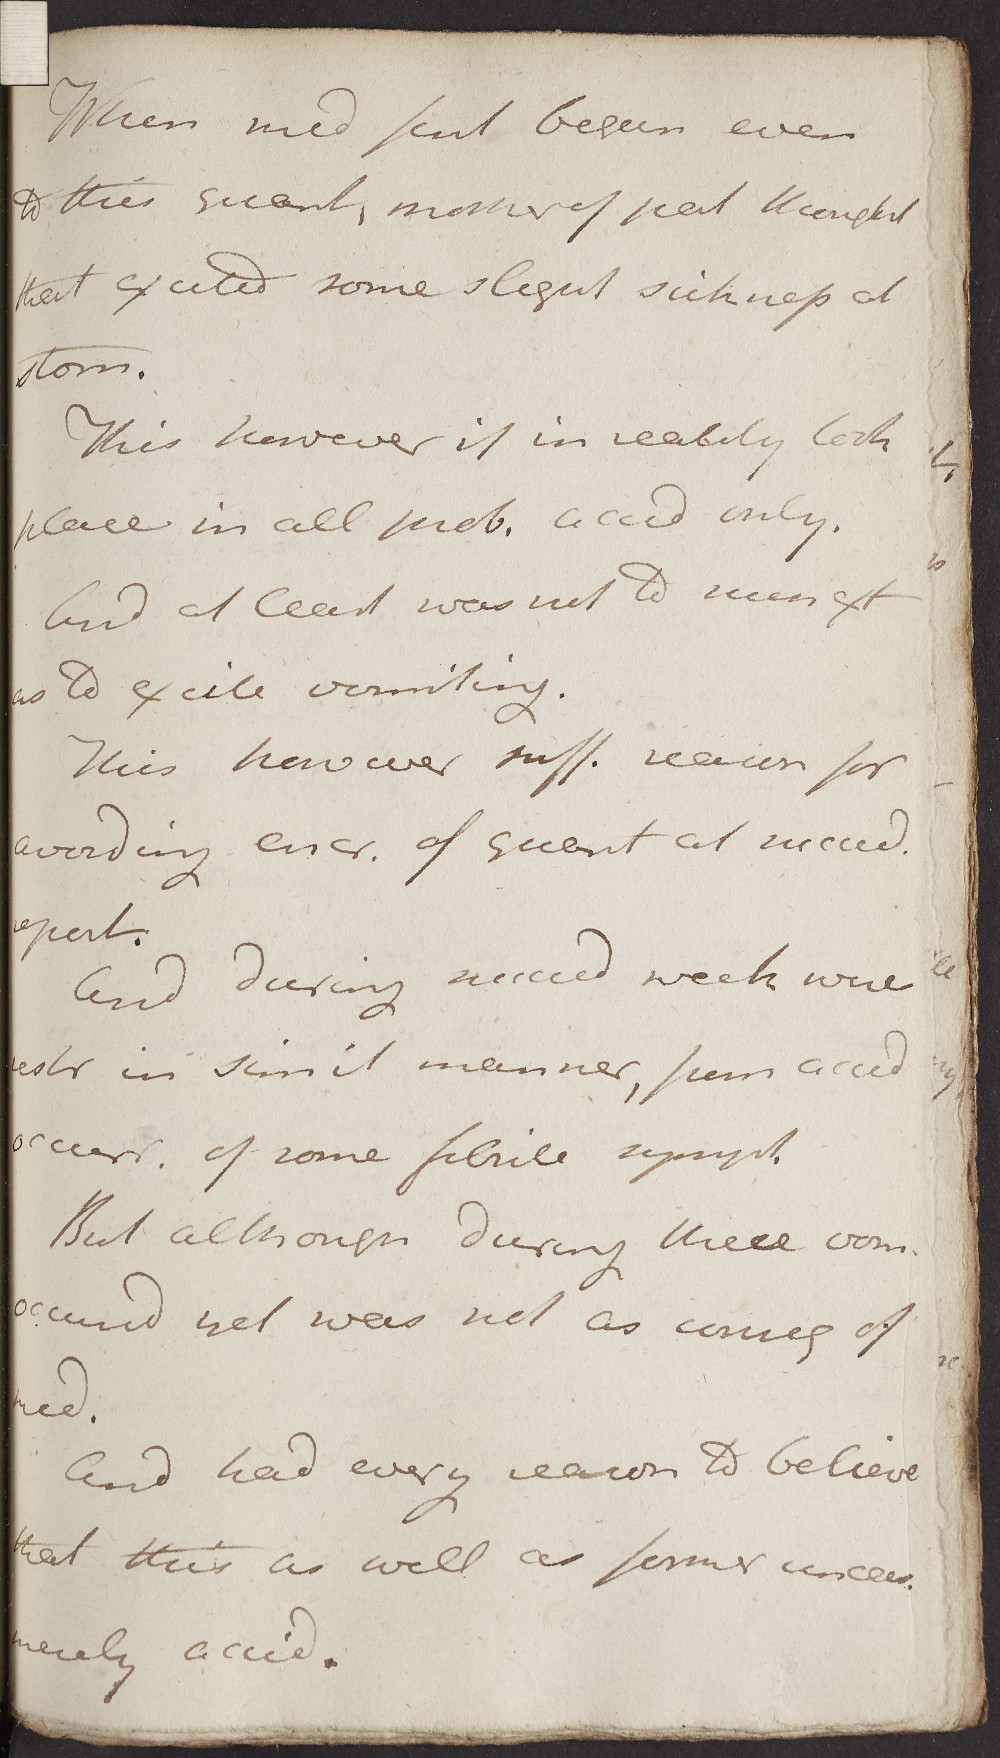 When med first begun even
to this quant, mother of pat thought
that excited some slight sickness at
stom.
This however if in reality took
place in all prob. accid only.
And at least was not to such ext
as to excite vomiting.
This however suff. reason for
avoiding encr. of quant at succeed.
report.
And during succeed week were
restr in simil manner, from accid
occurr. of some febrile sympt.
But although during these vom.
occurred yet was not as conseq of
med.
And had every reason to believe
that this as well as former
merely accid.